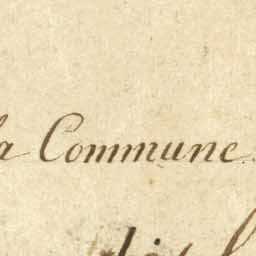 la Commune